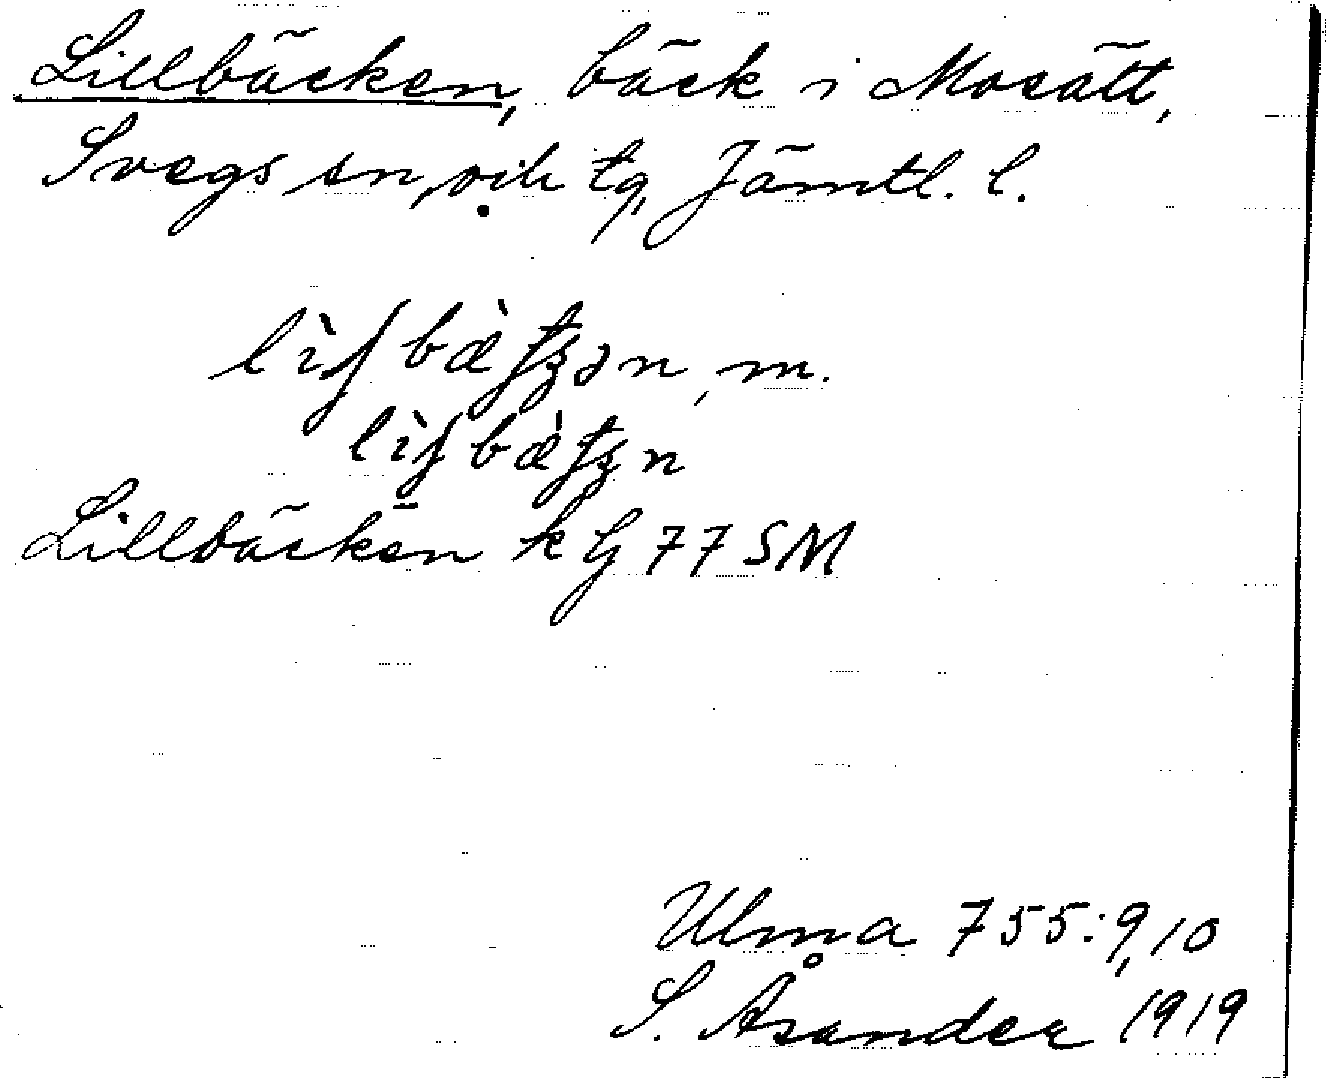 Lillbäcken, bäck i Mosätt,
Svegs sn, och tg, Jämtl. l.
m.
Lillbäcken k G 77 SM
Ulma 755:9,10
S. Åsander 1919